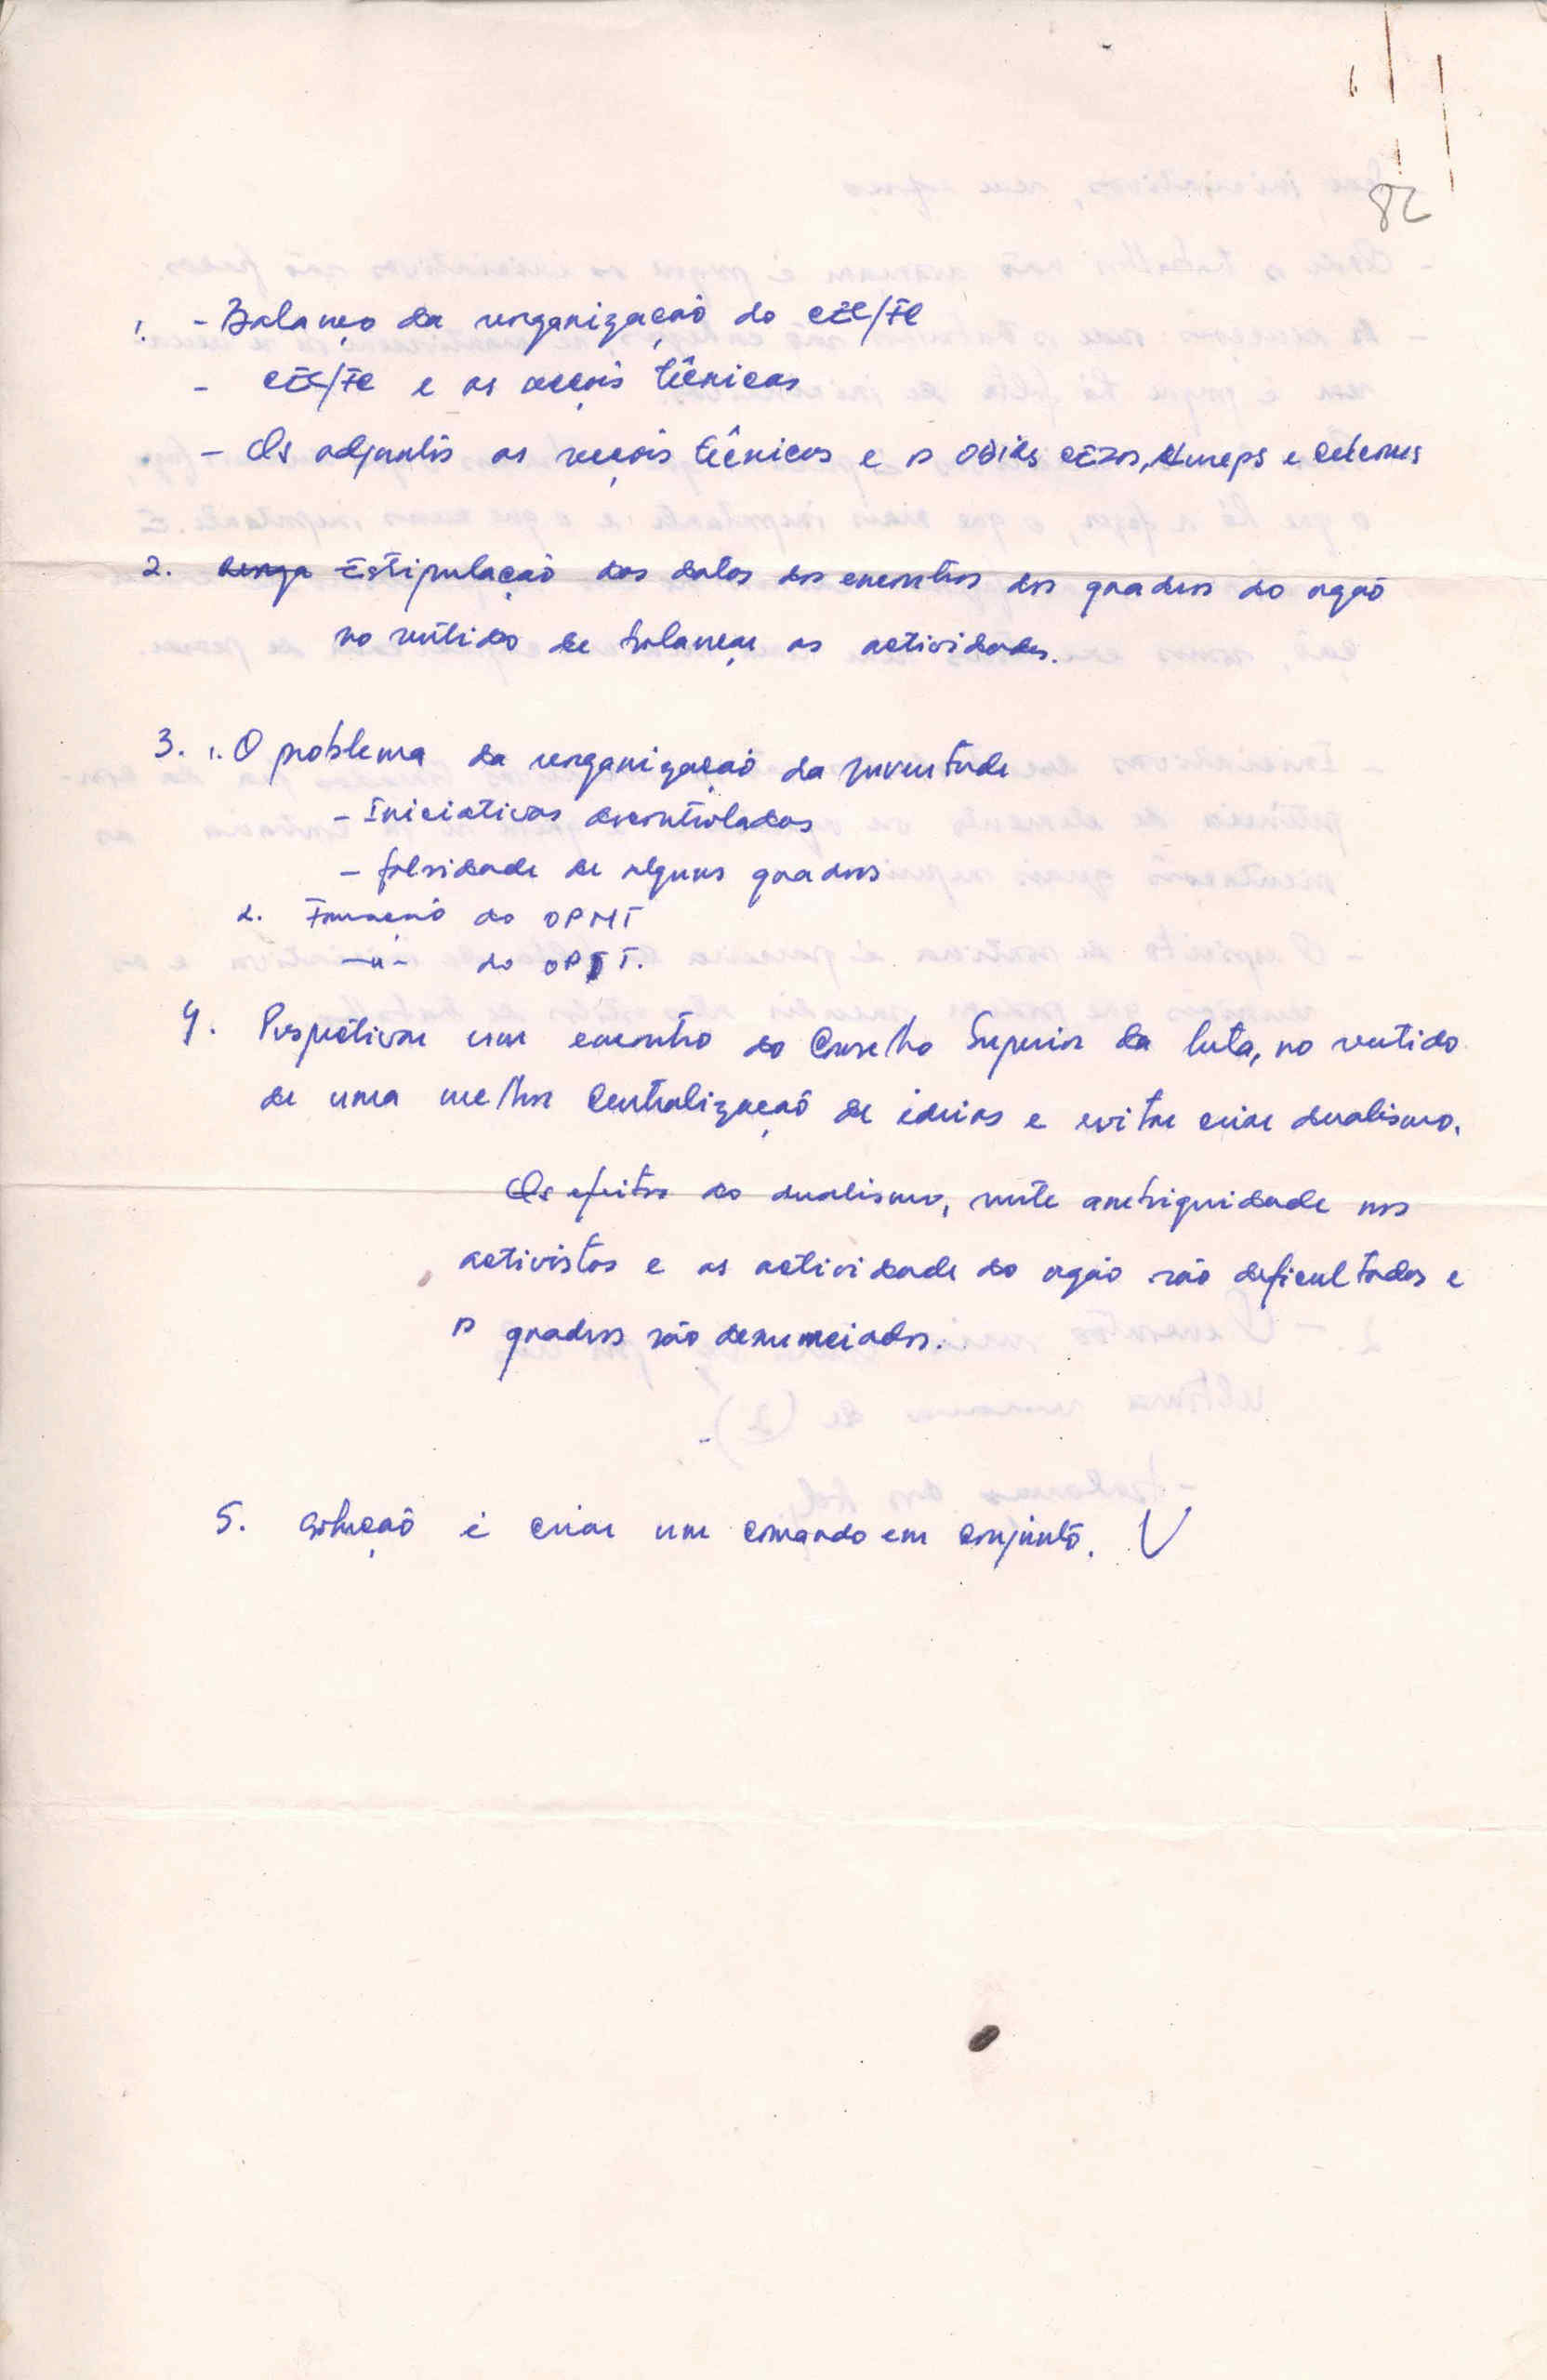 82
1. - Balanço da reorganização do CEL/FC
- CEL/FC e as secçois técnicas
- Os adjuntos as secçois técnicas e os e Celcoms
2. Estipulação das datas dos encontros dos quadros do orgaõ
no sentido de balançar as actividades.
3. 1. O problema da reorganizaçaõ da juventude
- Iniciativas descontroladas
- falsidade de alguns quadros
2. Formaçaõ do OPMT
-"- do OPJT.
4. Perspetivar um encontro do Conselho Superior da luta, no sentido
de uma melhor Centralizaçaõ de ideias e evitar criar dualismo.
Os efeitos do dualismo, ambiguidade nos
activistas e as actividade do orgão são deficultadas e
os quadros são denunciados.
5. soluçaõ é criar um comando em conjunto. V